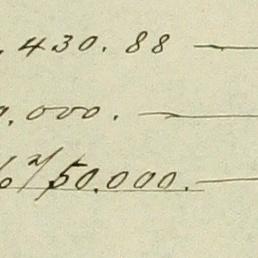 . 430. 88 —
0.000. —
% a/50.000. —